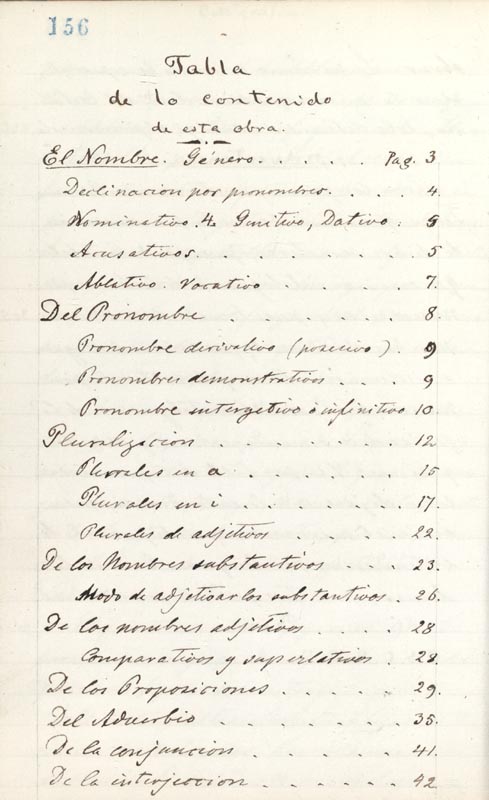 156
Tabla
de lo contenido
de esta obra.
El Nombre. Género. . . . . . Pag. 3
Declinacion por pronombres. . . . 4.
Nominativo. 4. Genitivo, Dativo . 5
Acusativos. . . . . . . 5
Ablativo. Vocativo . . . . 7.
Del Pronombre . . . . . . 8.
Pronombre derivativo (posesivo) . 9
Pronombres demonstrativos . . . 9
Pronombre intergetivo ó infinitivo 10
Pluralizacion . . . . . . 12
Plurales en a . . . . . . 15
Plurales en i . . . . . . 17.
Plurales de adjetivos . . . . 22
De los Nombres substantivos . . . 23.
Modo de adjetivar los substantivos . 26.
De los nombres adjetivos . . . . 28
Comparativos y superlativos . . 28.
De los Proposiciones . . . . . 29.
Del Adverbio . . . . . . 35.
De la conjuncion . . . . . 41.
De la interjeccion . . . . . 42